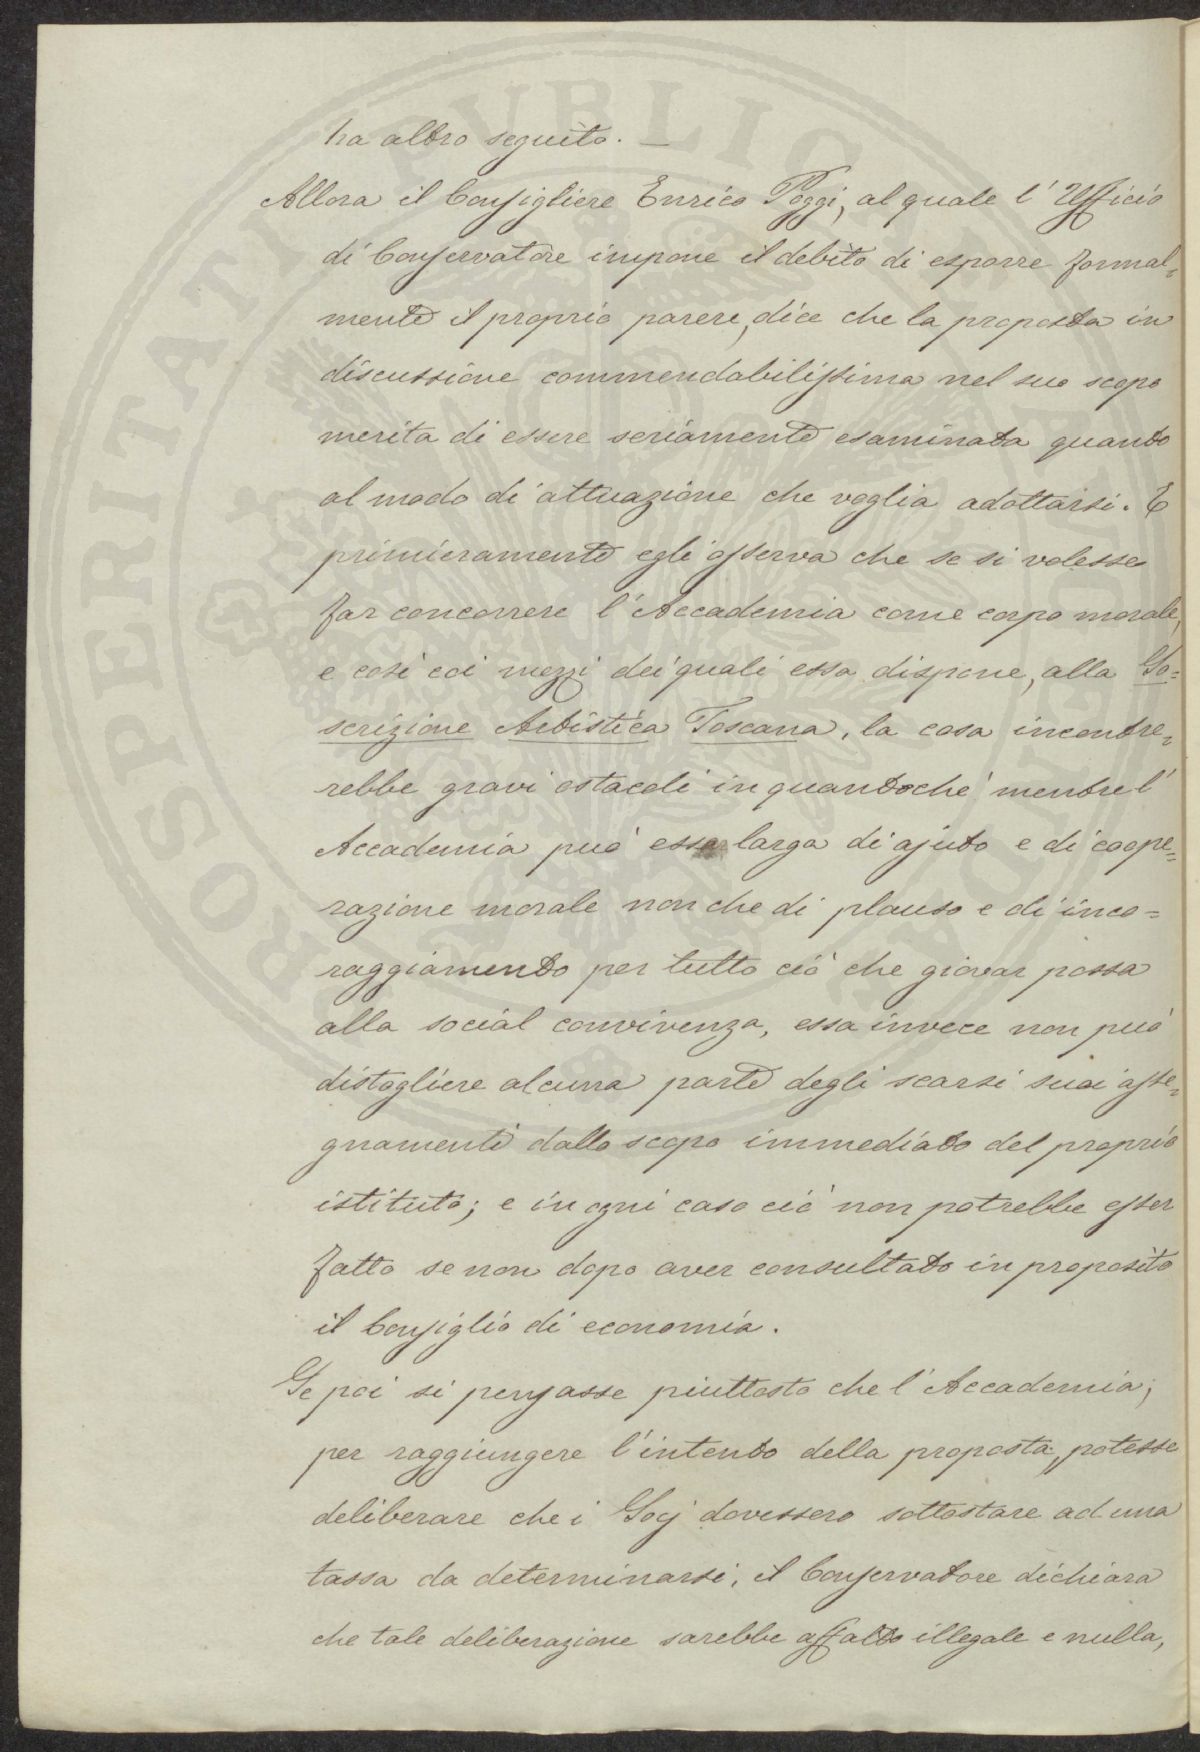 ha altro seguito. —
Allora il Consigliere Enrico Poggi, al quale l'Ufficio
di Conservatore impone il debito di esporre formal=
mente il proprio parere, dice che la proposta in
discussione commendabilissima nel suo scopo
merita di essere seriamente esaminata quanto
al modo di attuazione che voglia adottarsi. E
primieramente egli osserva che se si volesse
far concorrere l'Accademia come corpo morale,
e così coi mezzi dei quali essa dispone, alla So=
scrizione Artistica Toscana, la cosa incontre=
rebbe gravi ostacoli inquantoché mentre l'
Accademia può esser larga di ajuto e di coope=
razione morale non che di plauso e di inco=
raggiamento per tutto ciò che giovar possa
alla social convivenza, essa invece non può
distogliere alcuna parte degli scarsi suoi asse=
gnamenti dallo scopo immediato del proprio
istituto; e in ogni caso ciò non potrebbe esser
fatto se non dopo aver consultato in proposito
il Consiglio di economia.
Se poi si pensasse piuttosto che l'Accademia,
per raggiungere l'intento della proposta, potesse
deliberare che i Socj dovessero sottostare ad una
tassa da determinarsi, il Conservatore dichiara
che tale deliberazione sarebbe affatto illegale e nulla,
PROSPERITATI PUBLICAE